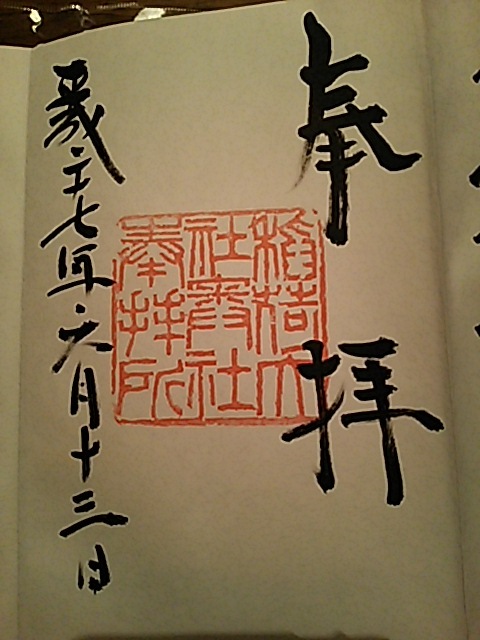 奉拝
稲荷大
社奥社
奉拝所
平成二十七年六月十三日